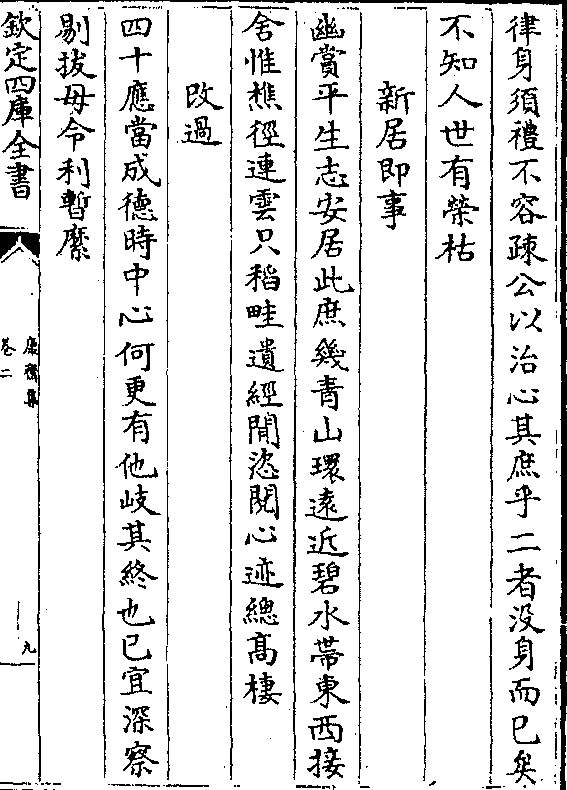 律身須禮不容疎公以治心其庶乎二者沒身而已矣
不知人世有榮枯
新居即事
幽賞平生志安居此庶幾青山環遠近碧水帶東西接
舍惟樵徑連雲只稻畦遺經閒恣閱心迹總髙棲
改過
四十應當成德時中心何更有他岐其終也已宜深察
剔拔毋令利暫縻
欽定四庫全書
卷二
九